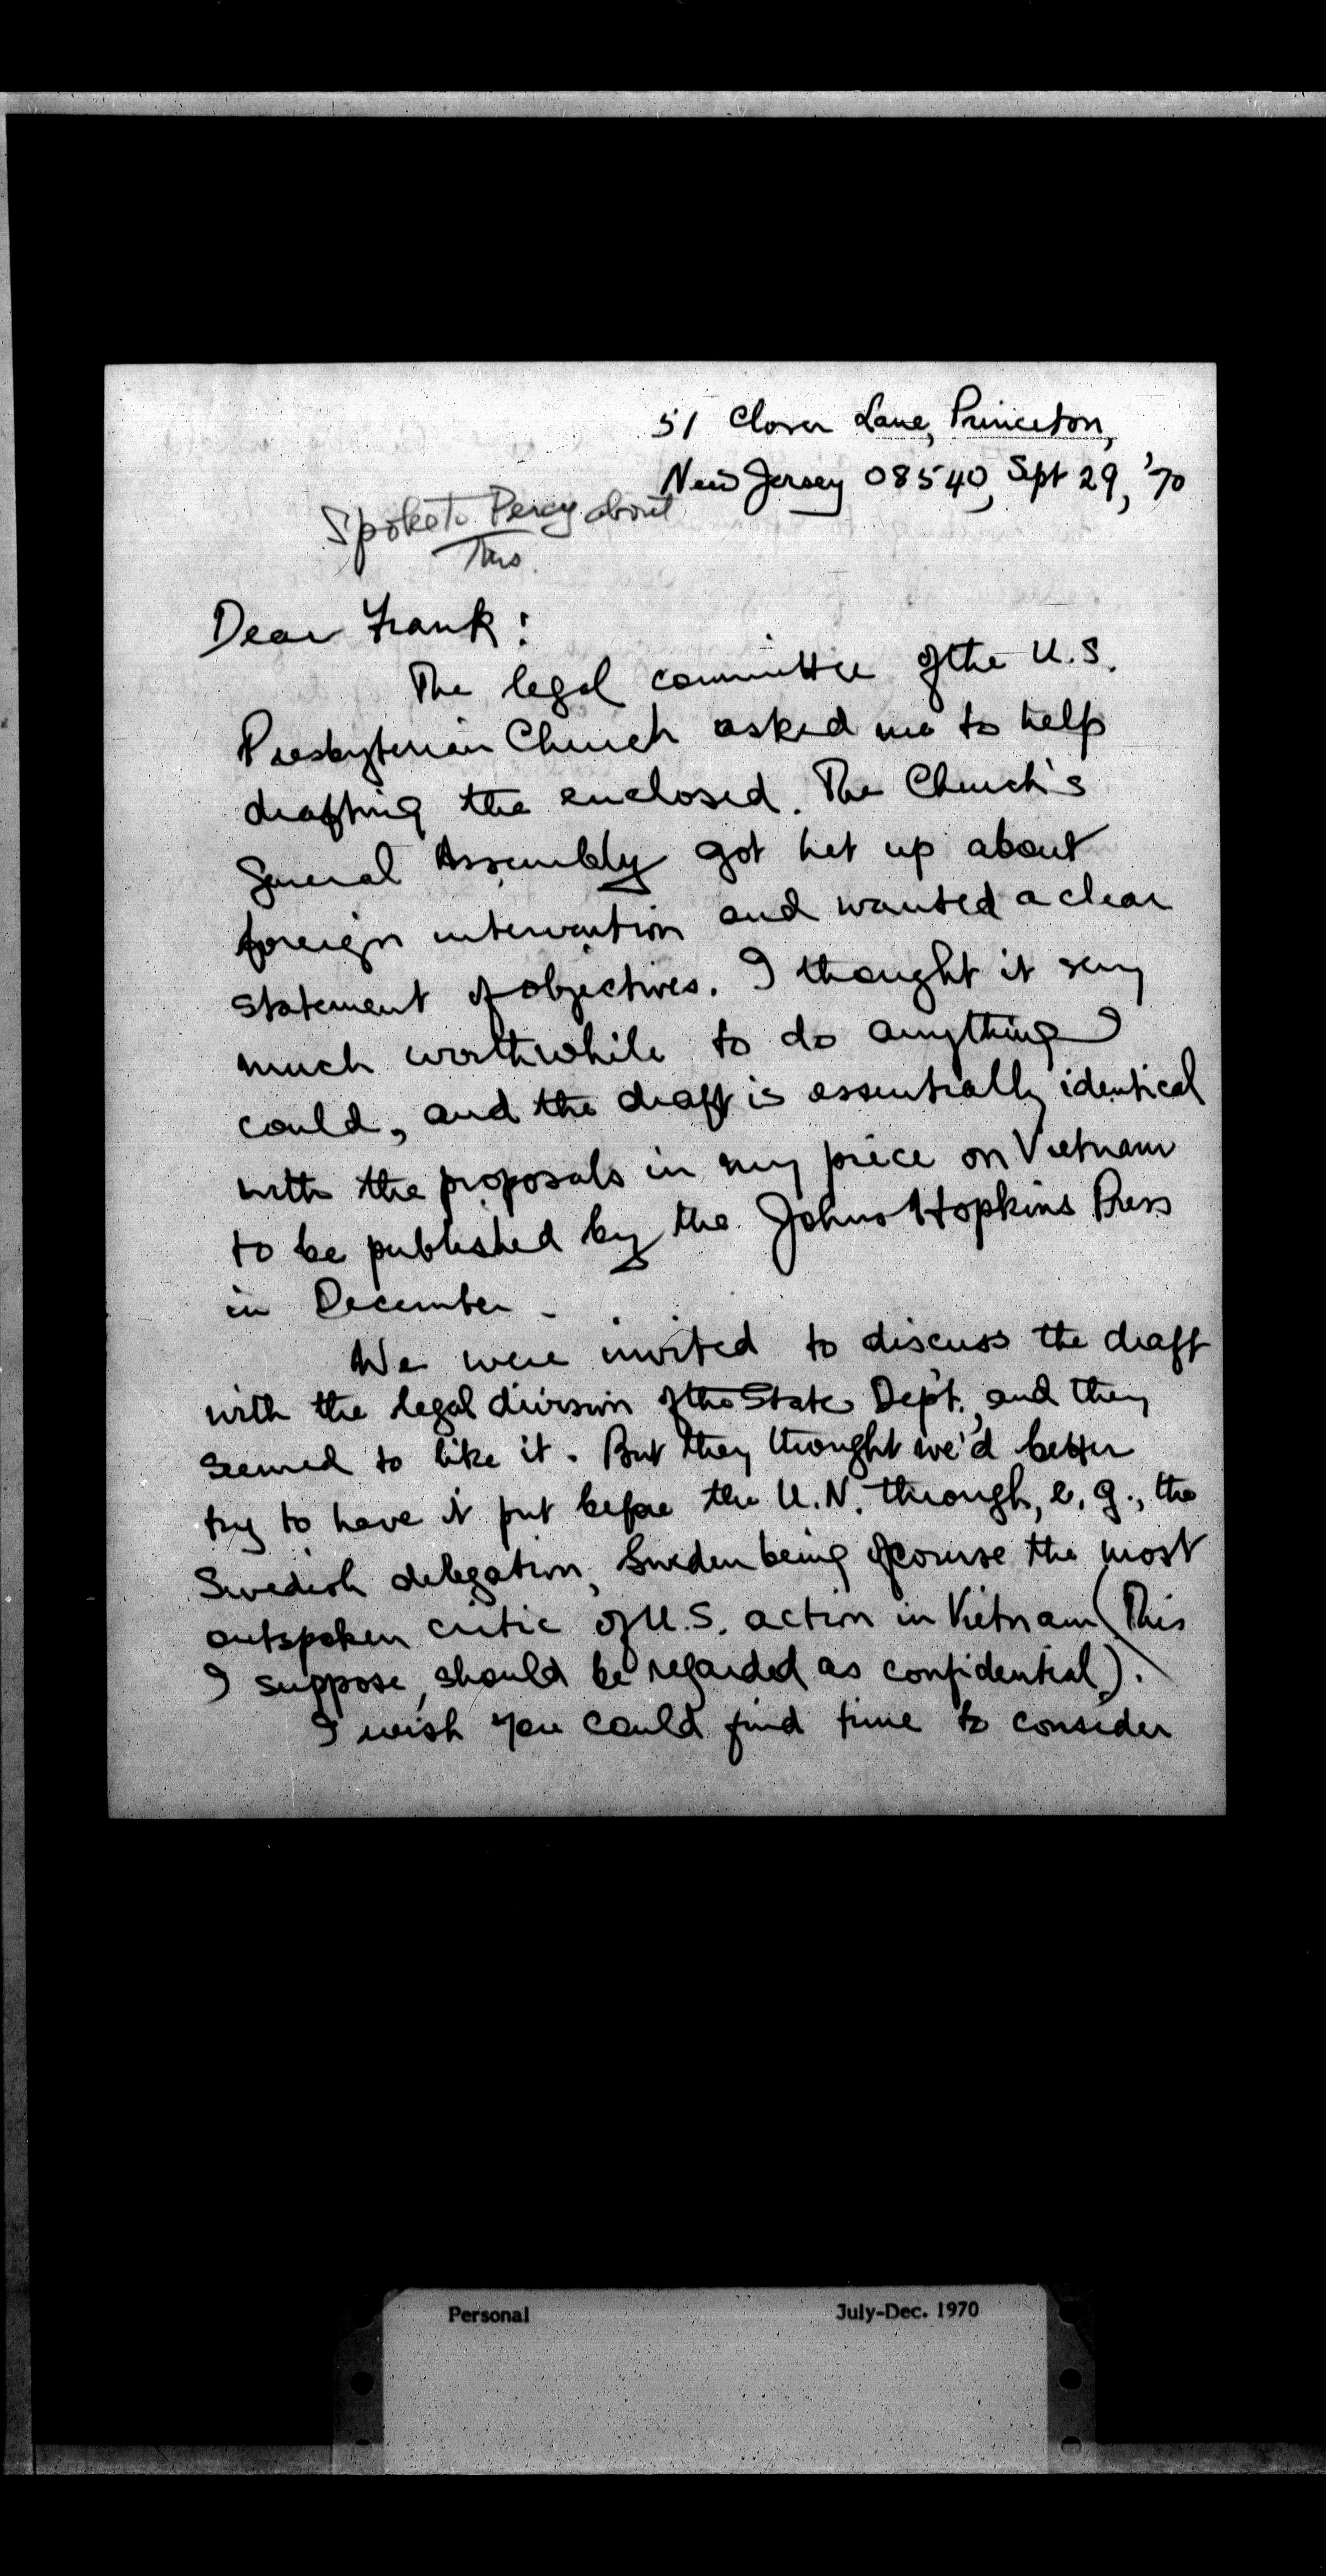 51 Clover Lane, Princeton,
New Jersey 08540, Sept 29, '70
Spoke to Percy about
this.
Dear Frank:
The legal committee of the U.S.
Presbyterian Church asked me to help
drafting the enclosed. The Church's
General Assembly got het up about
foreign intervention and wanted a clear
statement of objectives. I thought it very
much worthwhile to do anything I
could, and the draft is essentially identical
with the proposals in my piece on Vietnam
to be published by the Johns Hopkins Press
in December.
We were invited to discuss the draft
with the legal division of the State Dep't., and they
seemed to like it. But they thought we'd better
try to have it put before the U.N. through, e.g., the
Swedish delegation, Sweden being of course the most
outspoken critic of U.S. action in Vietnam (This
I suppose, should be regarded as confidential).
I wish you could find time to consider
Personal July-Dec. 1970